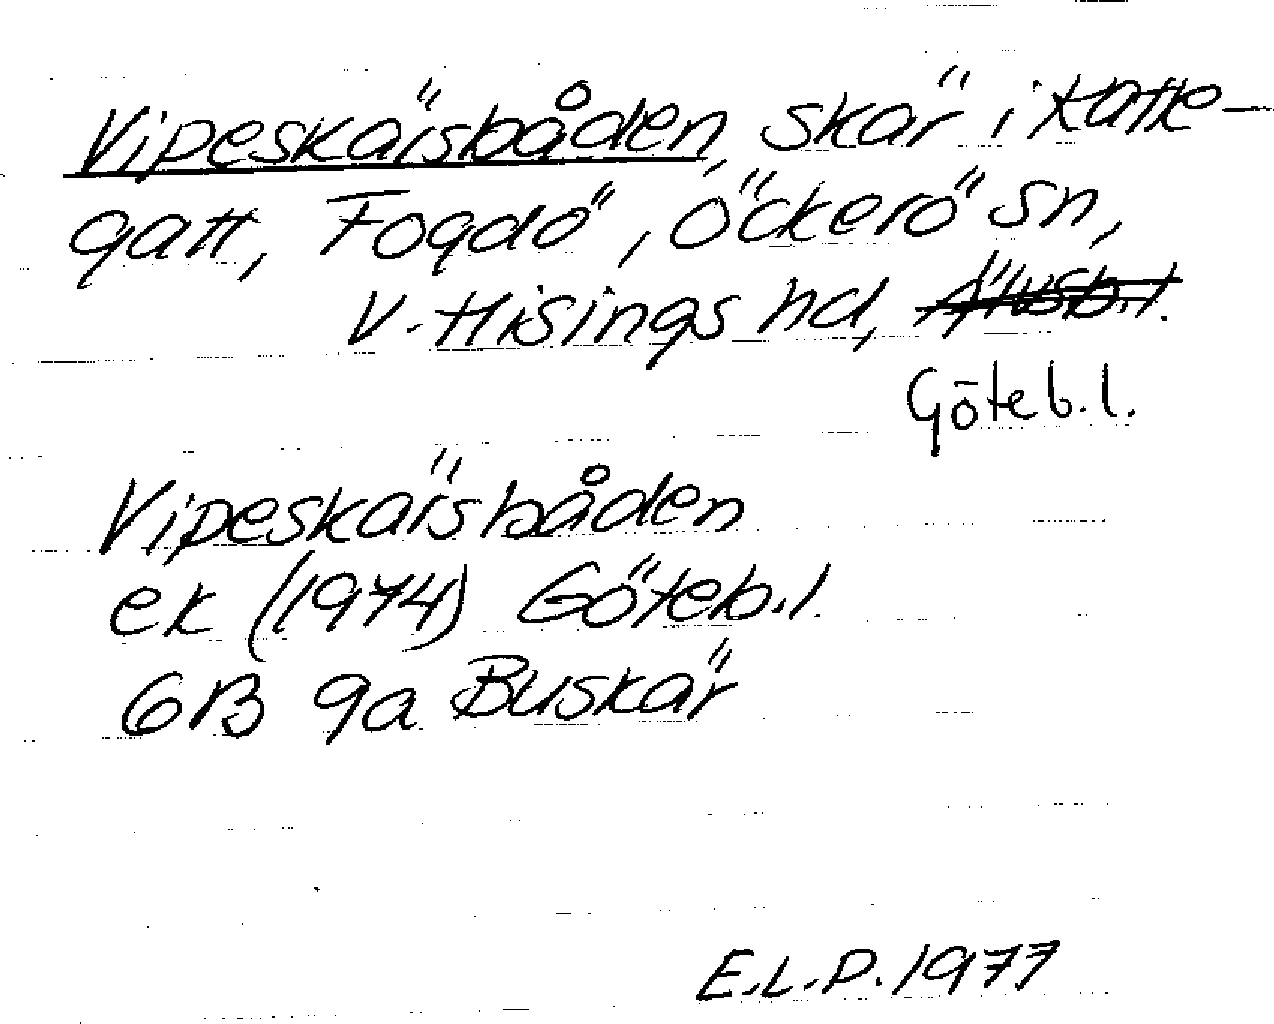 Vipeskärsbåden, skär i Katte-
gatt, Fogdö, Öckerö sn,
V. Hisings hd, Älvsb.l.
Göteb.l.
Vipeskärsbåden
ek (1974) Göteb.l.
6B 9a Buskär
E.L.P. 1977